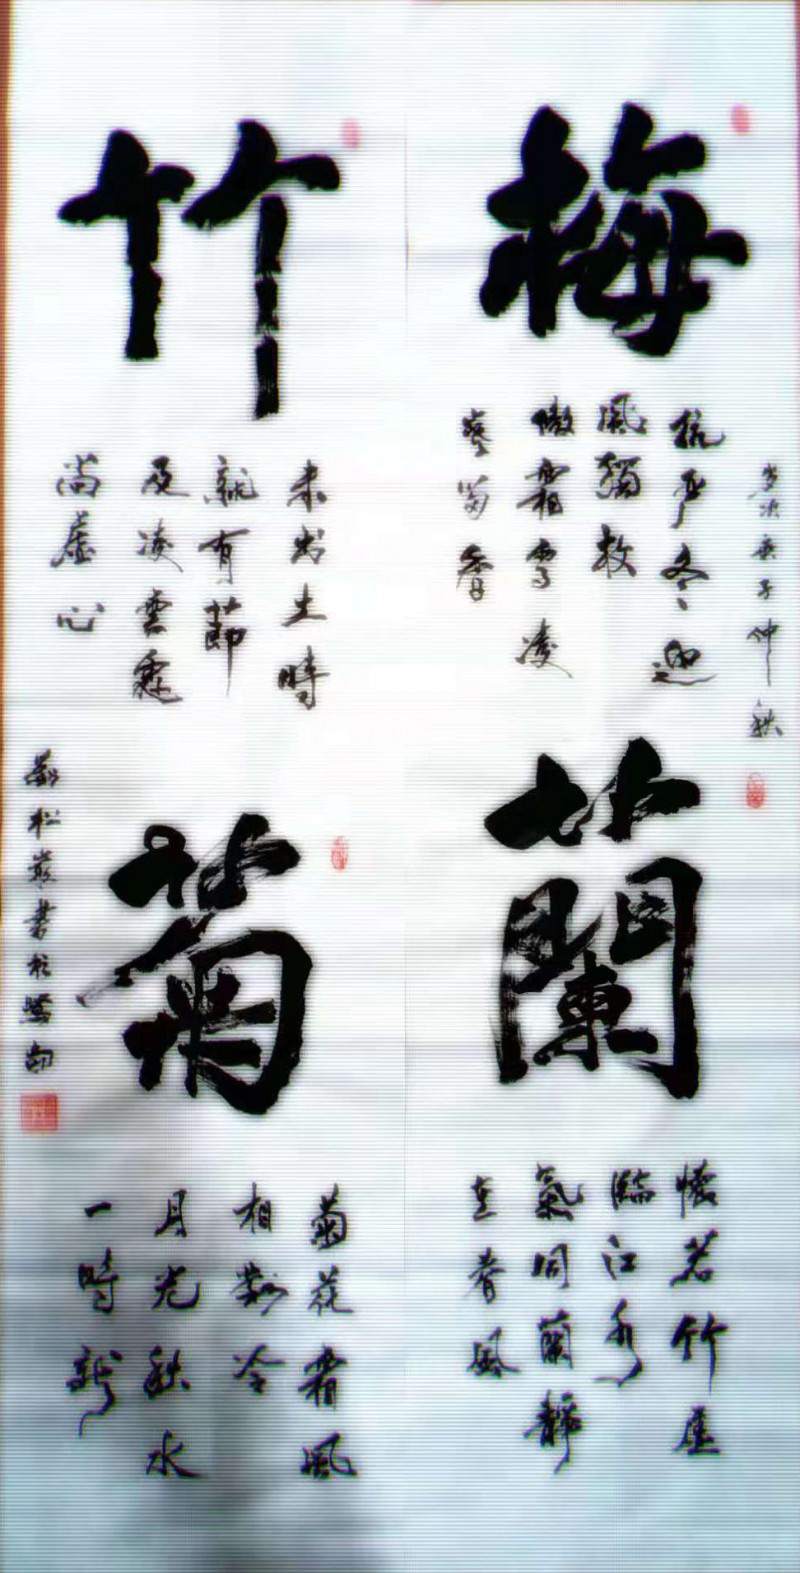 梅
歲次庚子仲秋
抗严冬迎
風獨放
傲霜雪凌
寒留香
蘭
懷若竹虛
臨江水
氣同蘭靜
在春風
竹
未出土時
就有節
及凌雲處
尚虛心
菊
菊花霜風
相對冷
月光秋水
一時
松巖書於